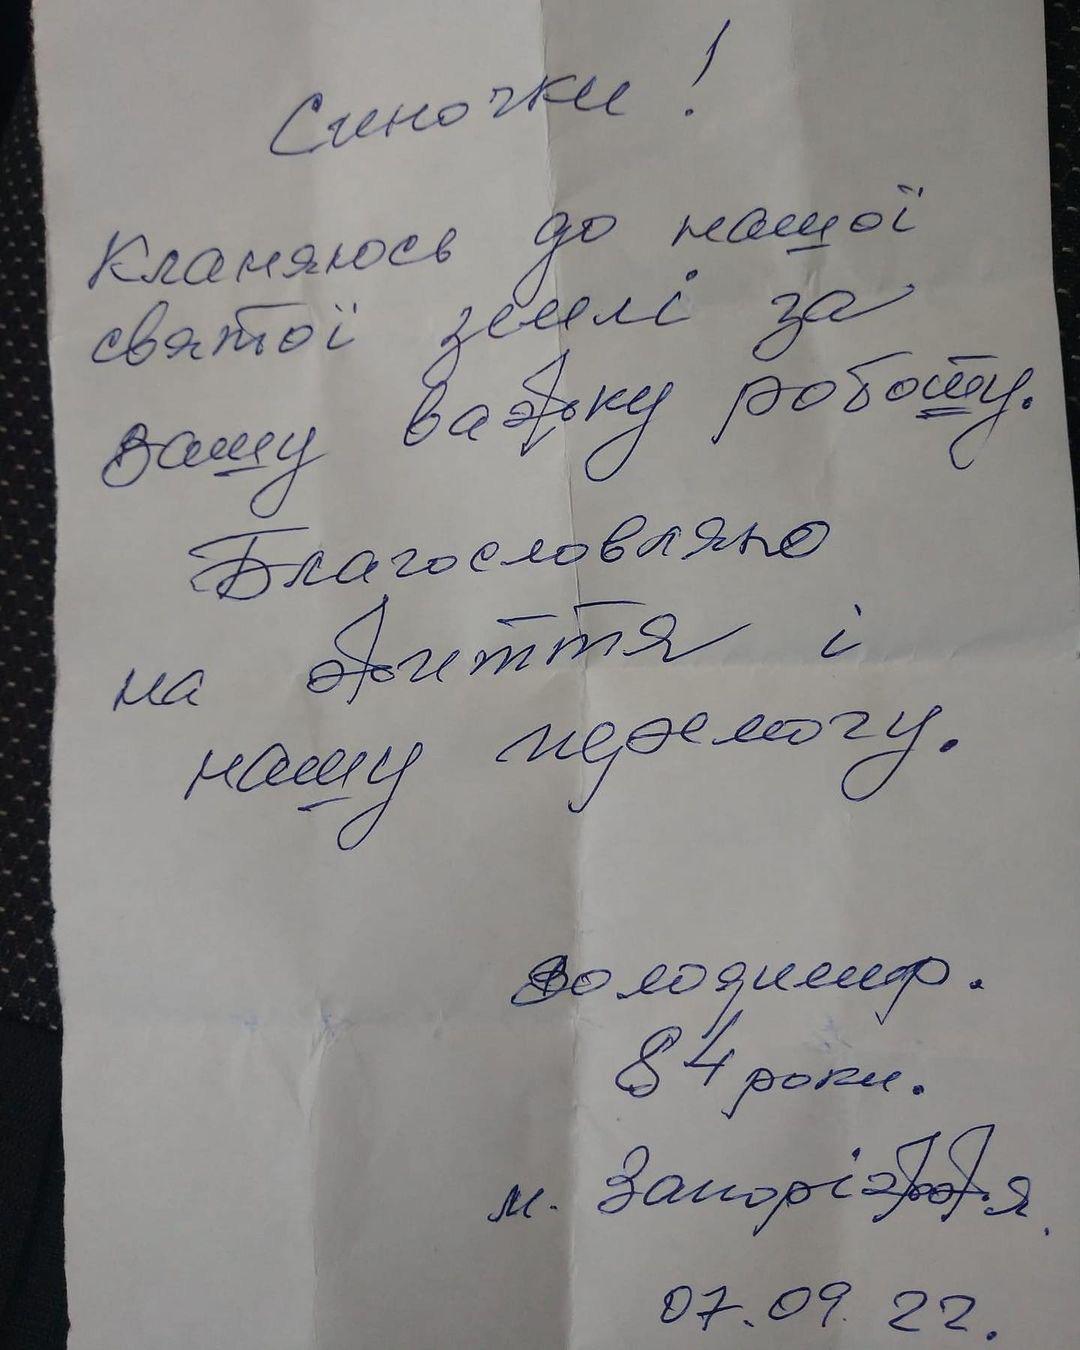 Синочки!
Кланяюсь до нашої
святої землі за
вашу важку роботу.
Благословляю
на життя і
нашу перемогу.
Володимир.
84 роки.
м. Запоріжжя.
07.09.22.